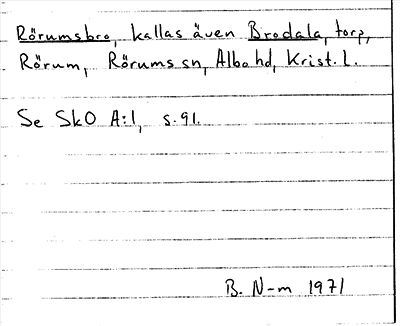 Rörumsbro, kallas även Brodala, torp,
Rörum, Rörums sn, Albo hd, Krist. l.
Se SkO A:1, s. 91.
B. N-m 1971